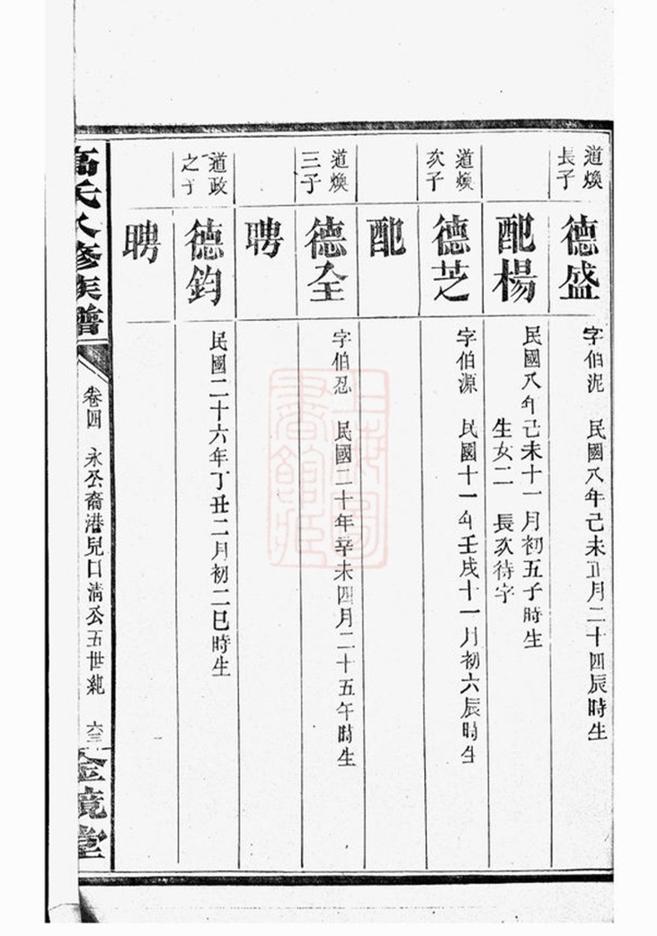 道煥
長子
德盛
字伯泥　民國八年己未正月二十四辰時生
配楊
民國八年己未十一月初五子時生
生女二　長次待字
道煥
次子
德芝
字伯源　民國十一年壬戌十一月初六辰時生
配
道煥
三子
德全
字伯忍　民國二十年辛未四月二十五午時生
聘
道政
之子
德鈞
民國二十六年丁丑二月初二巳時生
聘
高氏八修族譜
卷四　永公裔港兒口清公五世　六三
金鏡堂
上海圖書館藏